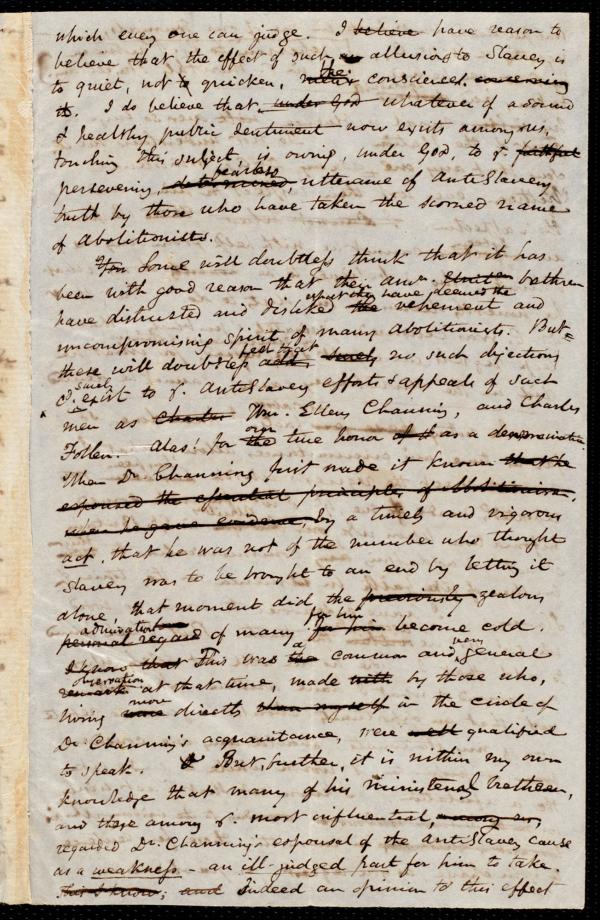 which every one can judge. I believe have reason to
believe that the effect of such allusions to Slavery is
to quiet, not to quicken, their the consciences. concerning
it. I do believe that, under God whatever of a sound
& healthy public sentiment now exists among us,
touching this subject, is owing, under God, to ye. faithful
persevering, determined, fearless utterance of AntiSlavery
truth by those who have taken the scorned name
of Abolitionists.
You Some will doubtless think that it has
been with good reason that their brethren
have distrusted and disliked the what they have deemed the vehement and
uncompromising spirit of many Abolitionists. But
these will doubtless add, feel that surely no such objections
cd. surely exist to ye. AntiSlavery efforts & appeals of such
men as Charles Wm. Ellery Channing, and Charles
Follen. Alas! for the our time honor as a denomination
When Dr. Channing first made it known that he
espoused the essential principles of Abolitionism,
when he gave evidence, by a timely and vigorous
act, that he was not of the number who thought
Slavery was to be brought to an end by letting it
alone, that moment did the previously zealous
personal regard admiration of many for him for him become cold.
I know that This was the a common and very general
remark observation at that time, made with by those who,
living more directly than myself in the circle of
Dr Channing's acquaintance, were well qualified
to speak. But, further, it is within my own
knowledge that many of his ministerial brethren,
and those among ye. most influential, among us,
regarded Dr. Channing's espousal of the AntiSlavery cause
as a weakness - an ill-judged part for him to take.
This I know; and Indeed an opinion to this effect